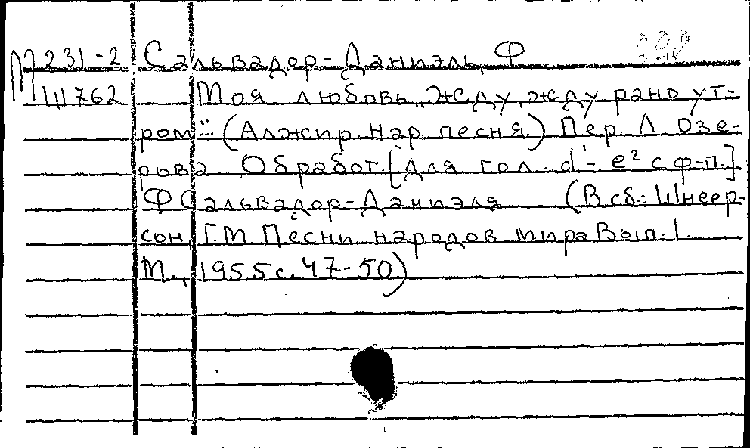 М231-2 Сальвадор-Даниэль, Ф
Ш762 Моя любовь, жду, жду рано ут-
ром" (Алжир. нар песня) Пер Л Озе-
рова Обработ. [для гол. d'-e² с ф-п.]
Ф Сальвадор-Даниэля (В сб.: Шнеер-
сон, Г.М Песни народов мира Вып. I.
М., 1955 с. 47-50)